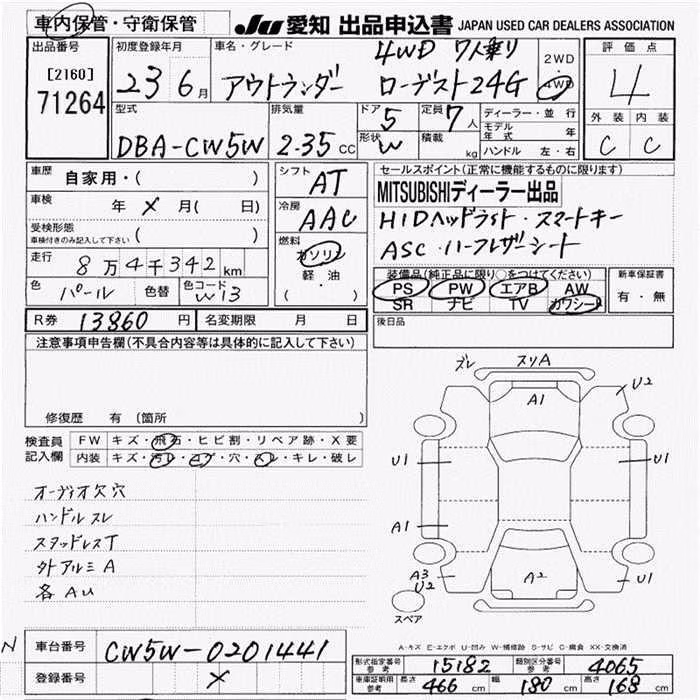 車内保管・守衛保管 JU 愛知 出品申込書 JAPAN USED CAR DEALERS ASSOCIATION
出品番号 初度登録年月 車名・グレード 4WD 7人乗り 2WD 評価点
[2160] 71264 23 6月 アウトランダー ローデスト24G 4WD 4
型式 排気量 ドア 5 定員 7人 ディーラー・並行 外装 内装
DBA-CW5W 2.35cc 形状 W 積載 kg モデル年式 年 C C
ハンドル 左・右
車歴 自家用・( ) シフト AT セールスポイント(正常に機能するものに限ります)
車検 年 X 月( 日) 冷房 AAC MITSUBISHIディーラー出品
受検形態 車検付きのみ記入して下さい ( ) 燃料 ガソリン HIDヘッドライト・スマートキー
走行 8万4千342km 軽・油 ASC・ハーフレザーシート
色 パール 色替 色コード W13 ( )
装備品(純正品に限り○をつけてください) 新車保証書
PS PW エアB AW 有・無
SR ナビ TV カワシート
R券 13860円 名変期限 月 日 後日品
注意事項申告欄(不具合内容等は具体的に記入して下さい)
修復歴 有 (箇所 )
検査員記入欄 FW キズ・飛石・ヒビ割・リペア跡・X要
内装 キズ・汚レ・コゲ・穴・スレ・キレ・破レ
オーディオ欠穴
ハンドルスレ
スタッドレスT
外アルミA
各AU
ズレ スリA
A1 U2
U1 U1
A1
A3 U2 A2 U1
スペア
A-キズ E-エクボ U-凹み W-補修跡 S-サビ C-腐食 XX-交換済
N 車台番号 CW5W-0201441
登録番号 X
形式指定番号 参考 15182 類別区分番号 参考 4065
車庫証明用 参考 長さ 466cm 幅 180cm 高さ 168cm